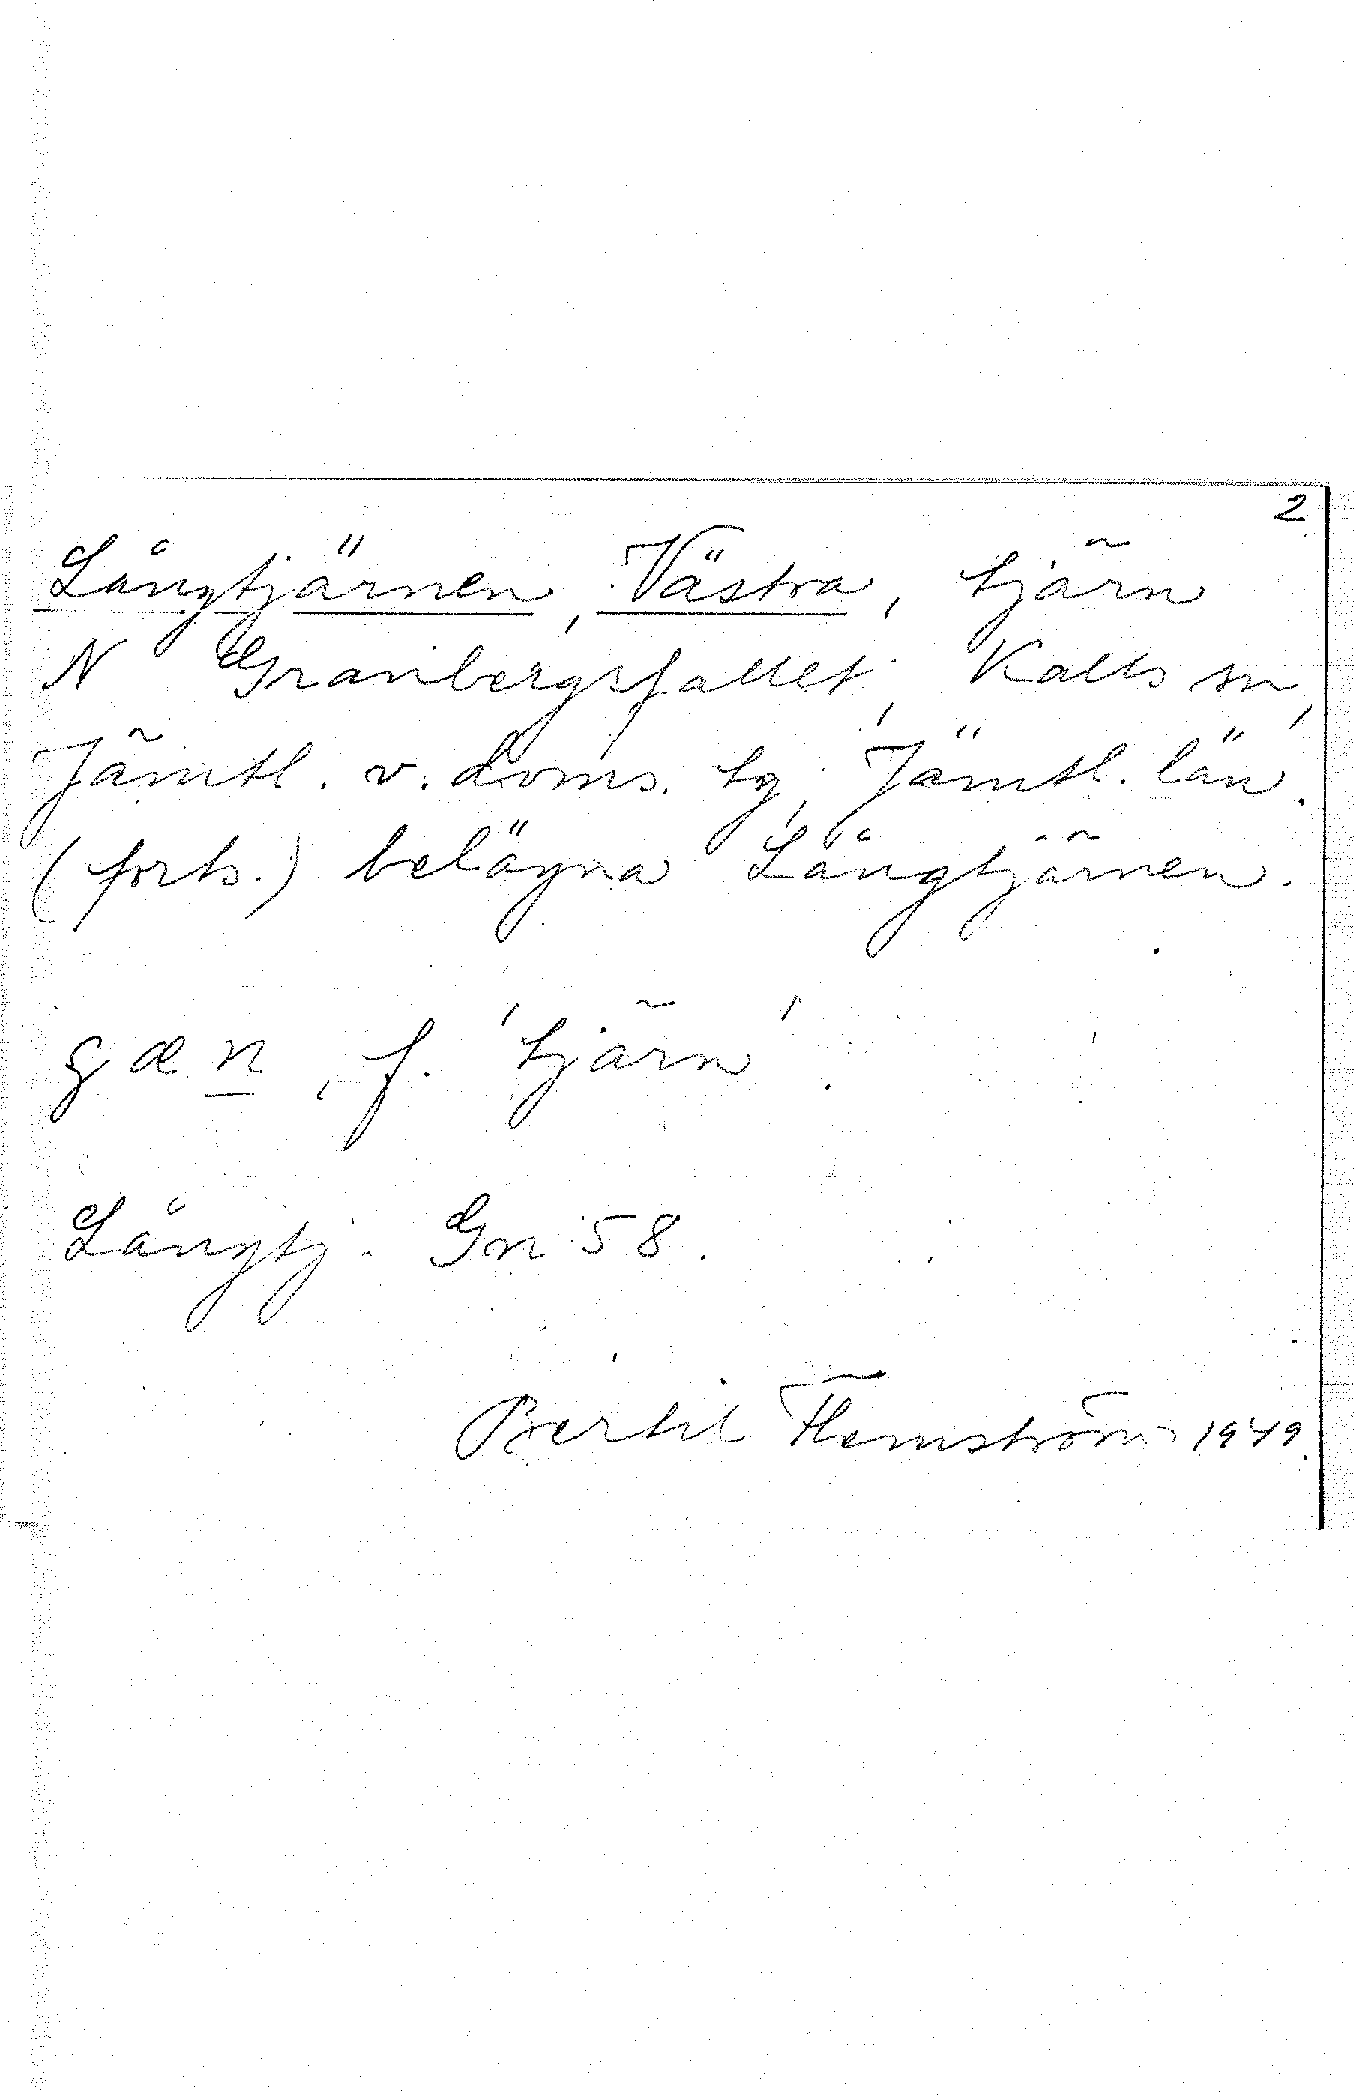 2
Långtjärnen, Västra, tjärn
N Granbergsfallet, Kalls sn,
Jämtl. v. doms. tg, Jämtl. län.
(forts.) belägna Långtjärnen.
gæn, f. 'tjärn'.
Långtj. Gn 58.
Bertil Flemström 1949.